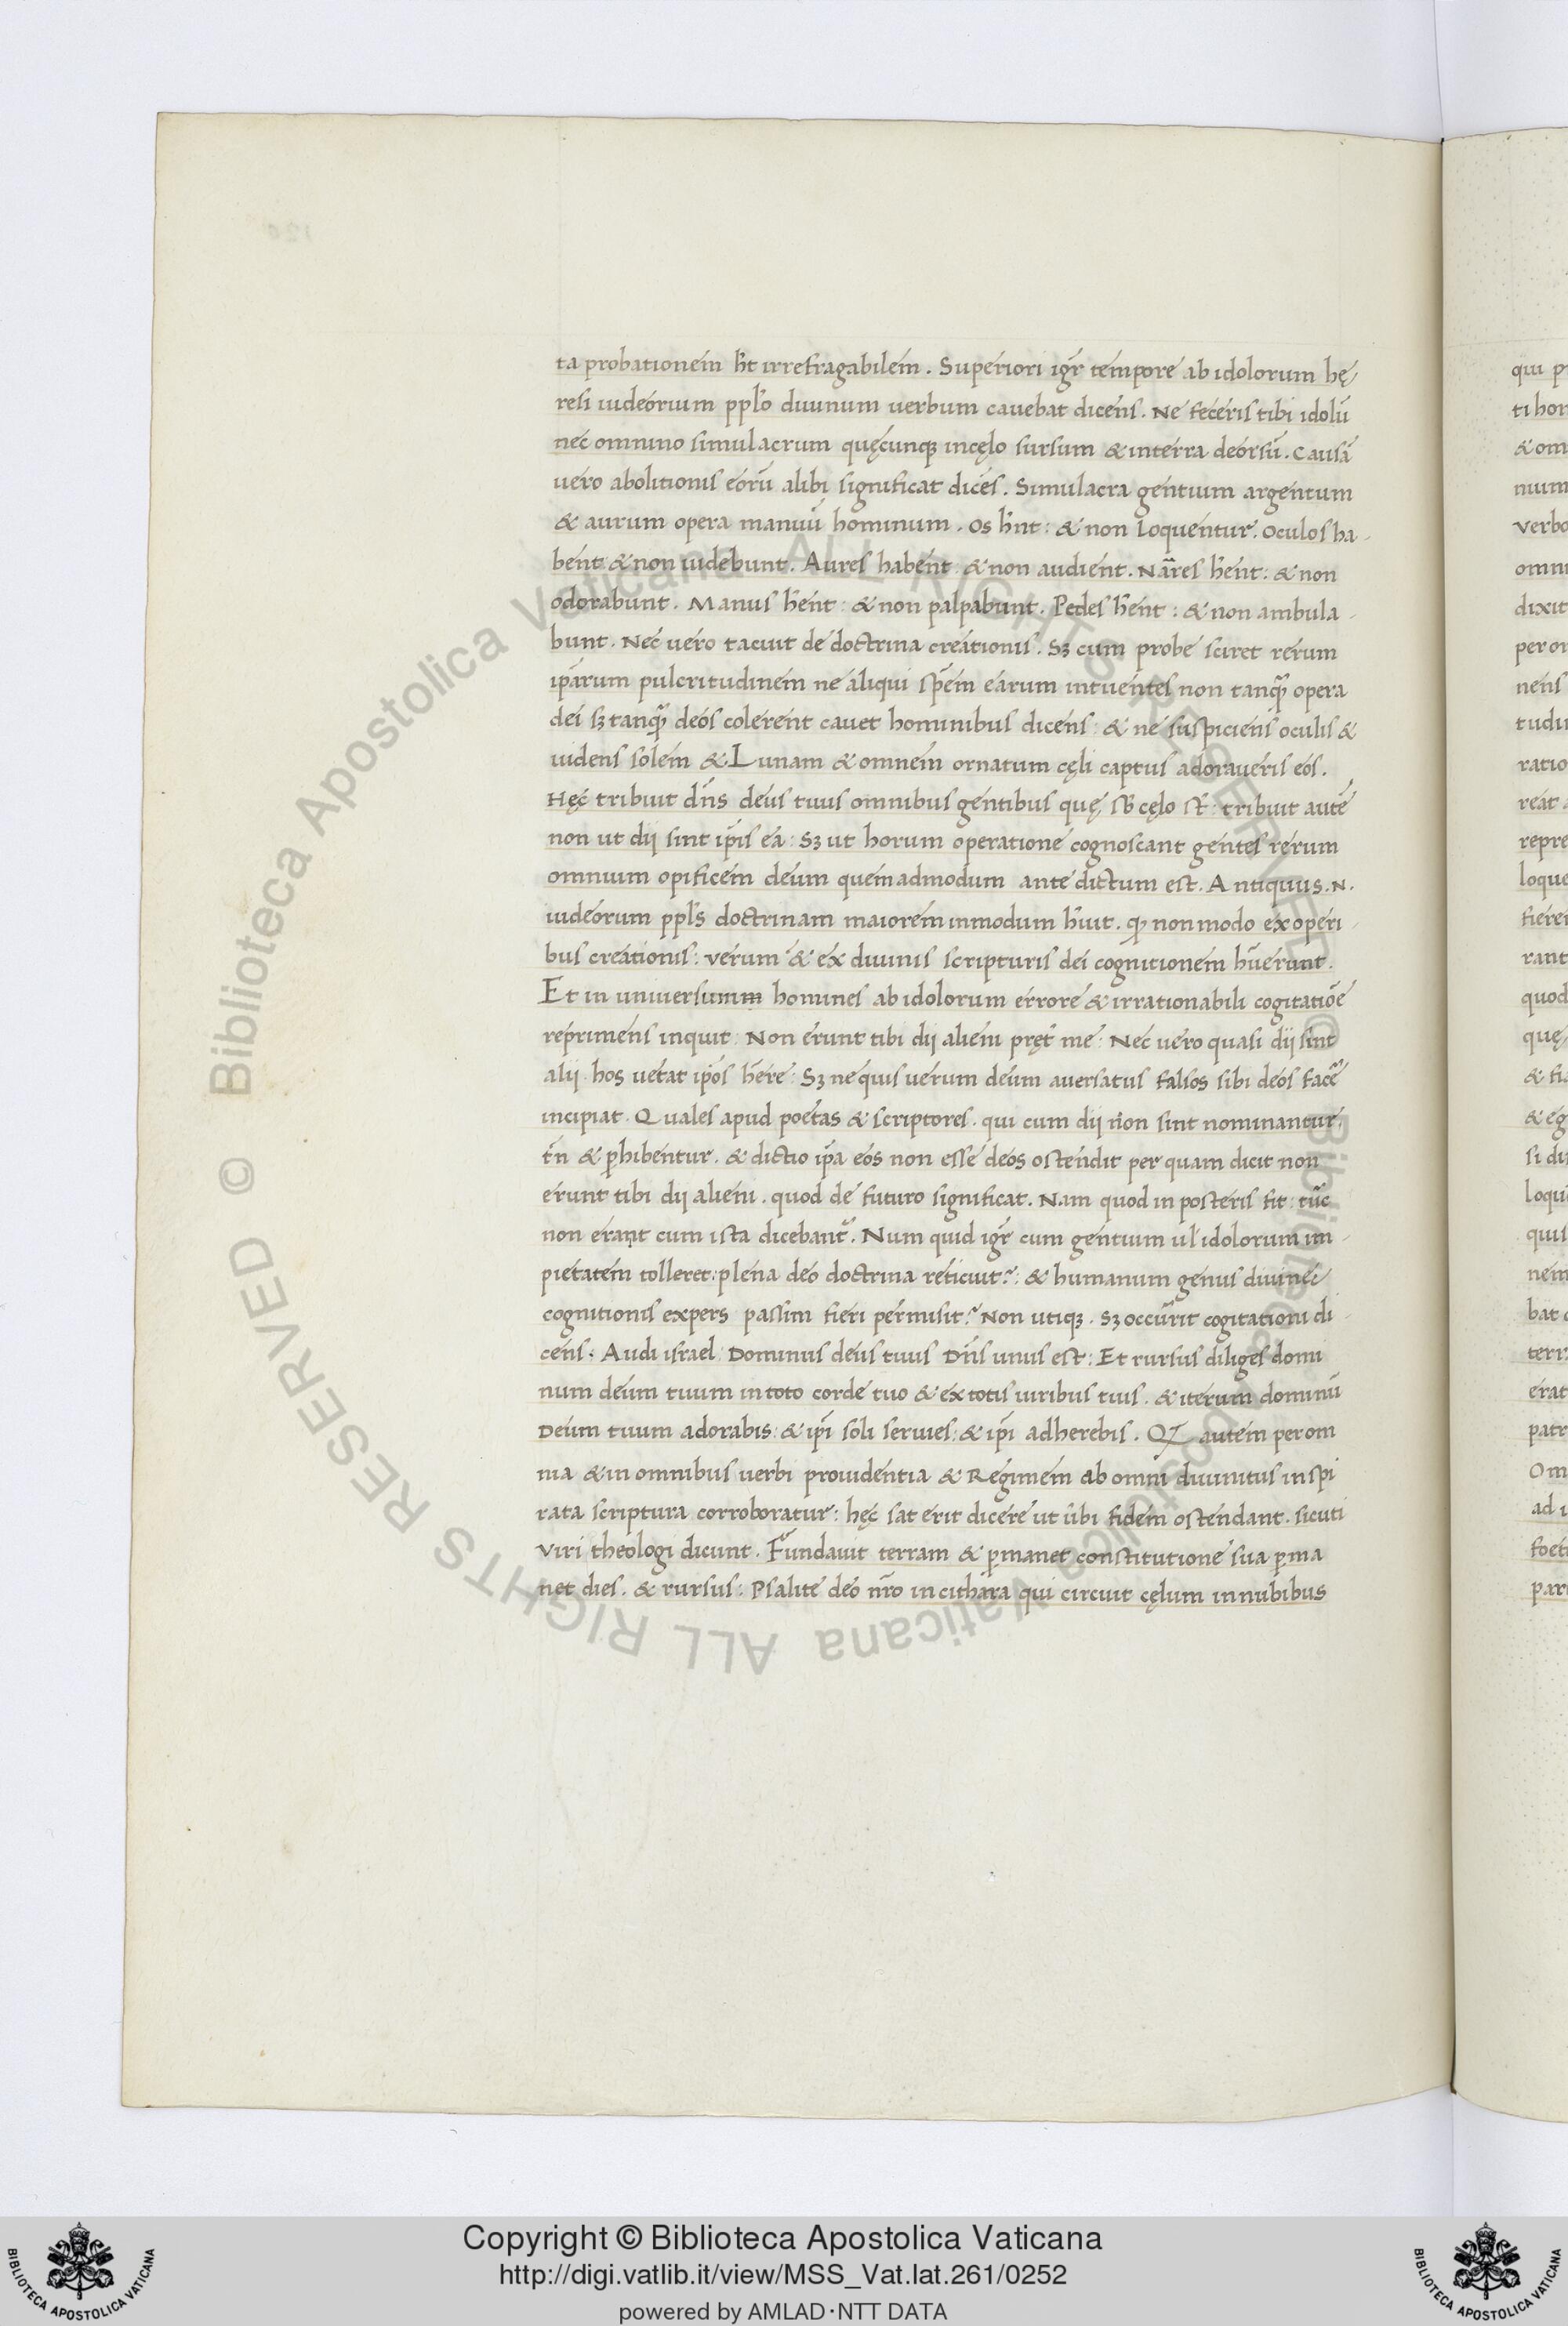 ta probationem hñt irrefragabilem. Superiori igr̃ tempore ab idolorum hę
resi iudeorum ppl'o diuinum uerbum cauebat dicens. Ne feceris tibi idolũ
nec omnino simulacrum quęcunqꝫ incęlo sursum & interra deorsũ. Causã
uero abolitionis eorũ alibi significat dicẽs. Simulacra gentium argentum
& aurum opera manuũ hominum. Os hñt: & non Loquentur. Oculos ha-
bent & non uidebunt. Aures habent: & non audient. Nãres hẽnt: & non
odorabunt. Manus hẽnt: & non palpabunt. Pedes hẽnt: & non ambula-
bunt. Nec uero tacuit de doctrina creationis. Sꝫ cum probe sciret rerum
ip̃arum pulcritudinem ne aliqui sp̃em earum intuentes non tanq̃ opera
dei sꝫ tanq̃ deos colerent cauet hominibus dicens: & ne suspiciens oculis &
uidens solem & Lunam & omnem ornatum cęli captus adoraueris eos.
Hęc tribuit dñs deus tuus omnibus gentibus quę sb̃ cęlo st̃: tribuit autẽ
non ut dij sint ip̃is ea: Sꝫ ut horum operatione cognoscant gentes rerum
omnium opificem deum quemadmodum ante dictum est. Antiquus .N.
iudeorum ppl's doctrinam maiorem inmodum h̃uit. ꝙ non modo ex operi-
bus creationis: verum & ex diuinis scripturis dei cognitionem hũerunt.
Et in uniuersumm homines ab idolorum errore & irrationabili cogitatiõe
reprimens inquit: Non erunt tibi dij alieni pręt̃ me: Nec uero quasi dij sint
alij hos uetat ip̃os hẽre: Sꝫ nequis uerum deum auersatus falsos sibi deos facẽ
incipiat. Quales apud poetas & scriptores. qui cum dij non sint nominantur.
tñ & ꝑhibentur. & dictio ip̃a eos non esse deos ostendit per quam dicit non
erunt tibi dij alieni. quod de futuro significat. Nam quod in posteris fit: tũc
non erant cum ista dicebant̃. Num quid igr̃ cum gentium ul' idolorum im-
pietatem tolleret: plena deo doctrina reticuit?: & humanum genus diuinę
cognitionis expers passim fieri permisit? Non utiqꝫ. Sꝫ occũrit cogitationi di-
cens. Audi israel: Dominus deus tuus Dñs unus est: Et rursus diliges domi
num deum tuum in toto corde tuo & ex totis uiribus tuis. & iterum dominũ
Deum tuum adorabis: & ip̃i soli seruies: & ip̃i adherebis. Qꝫ autem per om
nia & in omnibus uerbi prouidentia & Regimem ab omni diuinitus inspi
rata scriptura corroboratur: hęc sat erit dicere ut ubi fidem ostendant. sicuti
viri theologi dicunt. Fundauit terram & ꝑmanet constitutione sua ꝑma
net dies. & rursus: Psalite deo nr̃o in cithara qui circuit cęlum in nubibus
Copyright © Biblioteca Apostolica Vaticana
http://digi.vatlib.it/view/MSS_Vat.lat.261/0252
powered by AMLAD·NTT DATA